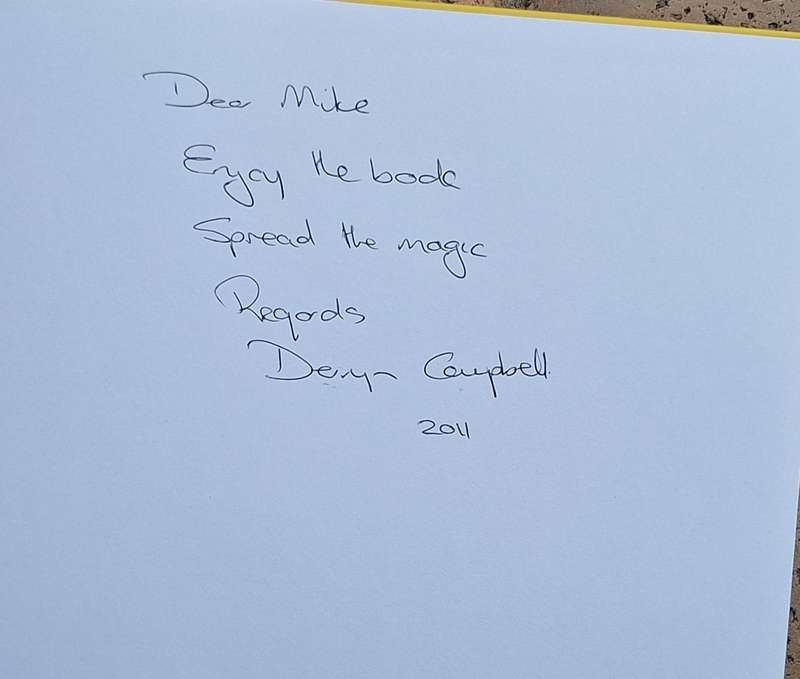 Dear Mike
Enjoy the book
Spread the magic
Regards
Deryn Campbell
2011